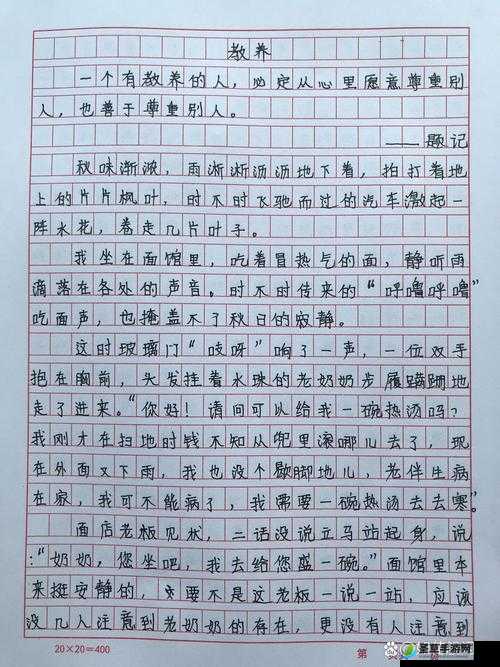 教养
一个有教养的人，必定从心里愿意尊重别
人，也善于尊重别人。
——题记
秋味渐浓，雨淅淅沥沥地下着，拍打着地
上的片片枫叶，时不时飞驰而过的汽车激起一
阵水花，卷走几片叶子。
我坐在面馆里，吃着冒热气的面，静听雨
滴落在各处的声音。时不时传来的“呼噜呼噜”
吃面声，也掩盖不了秋日的寂静。
这时玻璃门“吱呀”响了一声，一位双手
抱在胸前，头发挂着水珠的老奶奶步履蹒跚地
走了进来。“你好！请问可以给我一碗热汤吗？
我刚才在扫地时钱不知从兜里滚哪儿去了，现
在外面又下雨，我也没个歇脚地儿，老伴生病
在家，我可不能病了，我需要一碗热汤去去寒”
面店老板见状，二话没说立马站起身，说
：“奶奶，您坐吧，我去给您盛一碗。”面馆里本
来挺安静的，要不是这老板一说一站，应该
没几人注意到老奶奶的存在，更没有人注意到
20×20=400
第
圣夏手游网